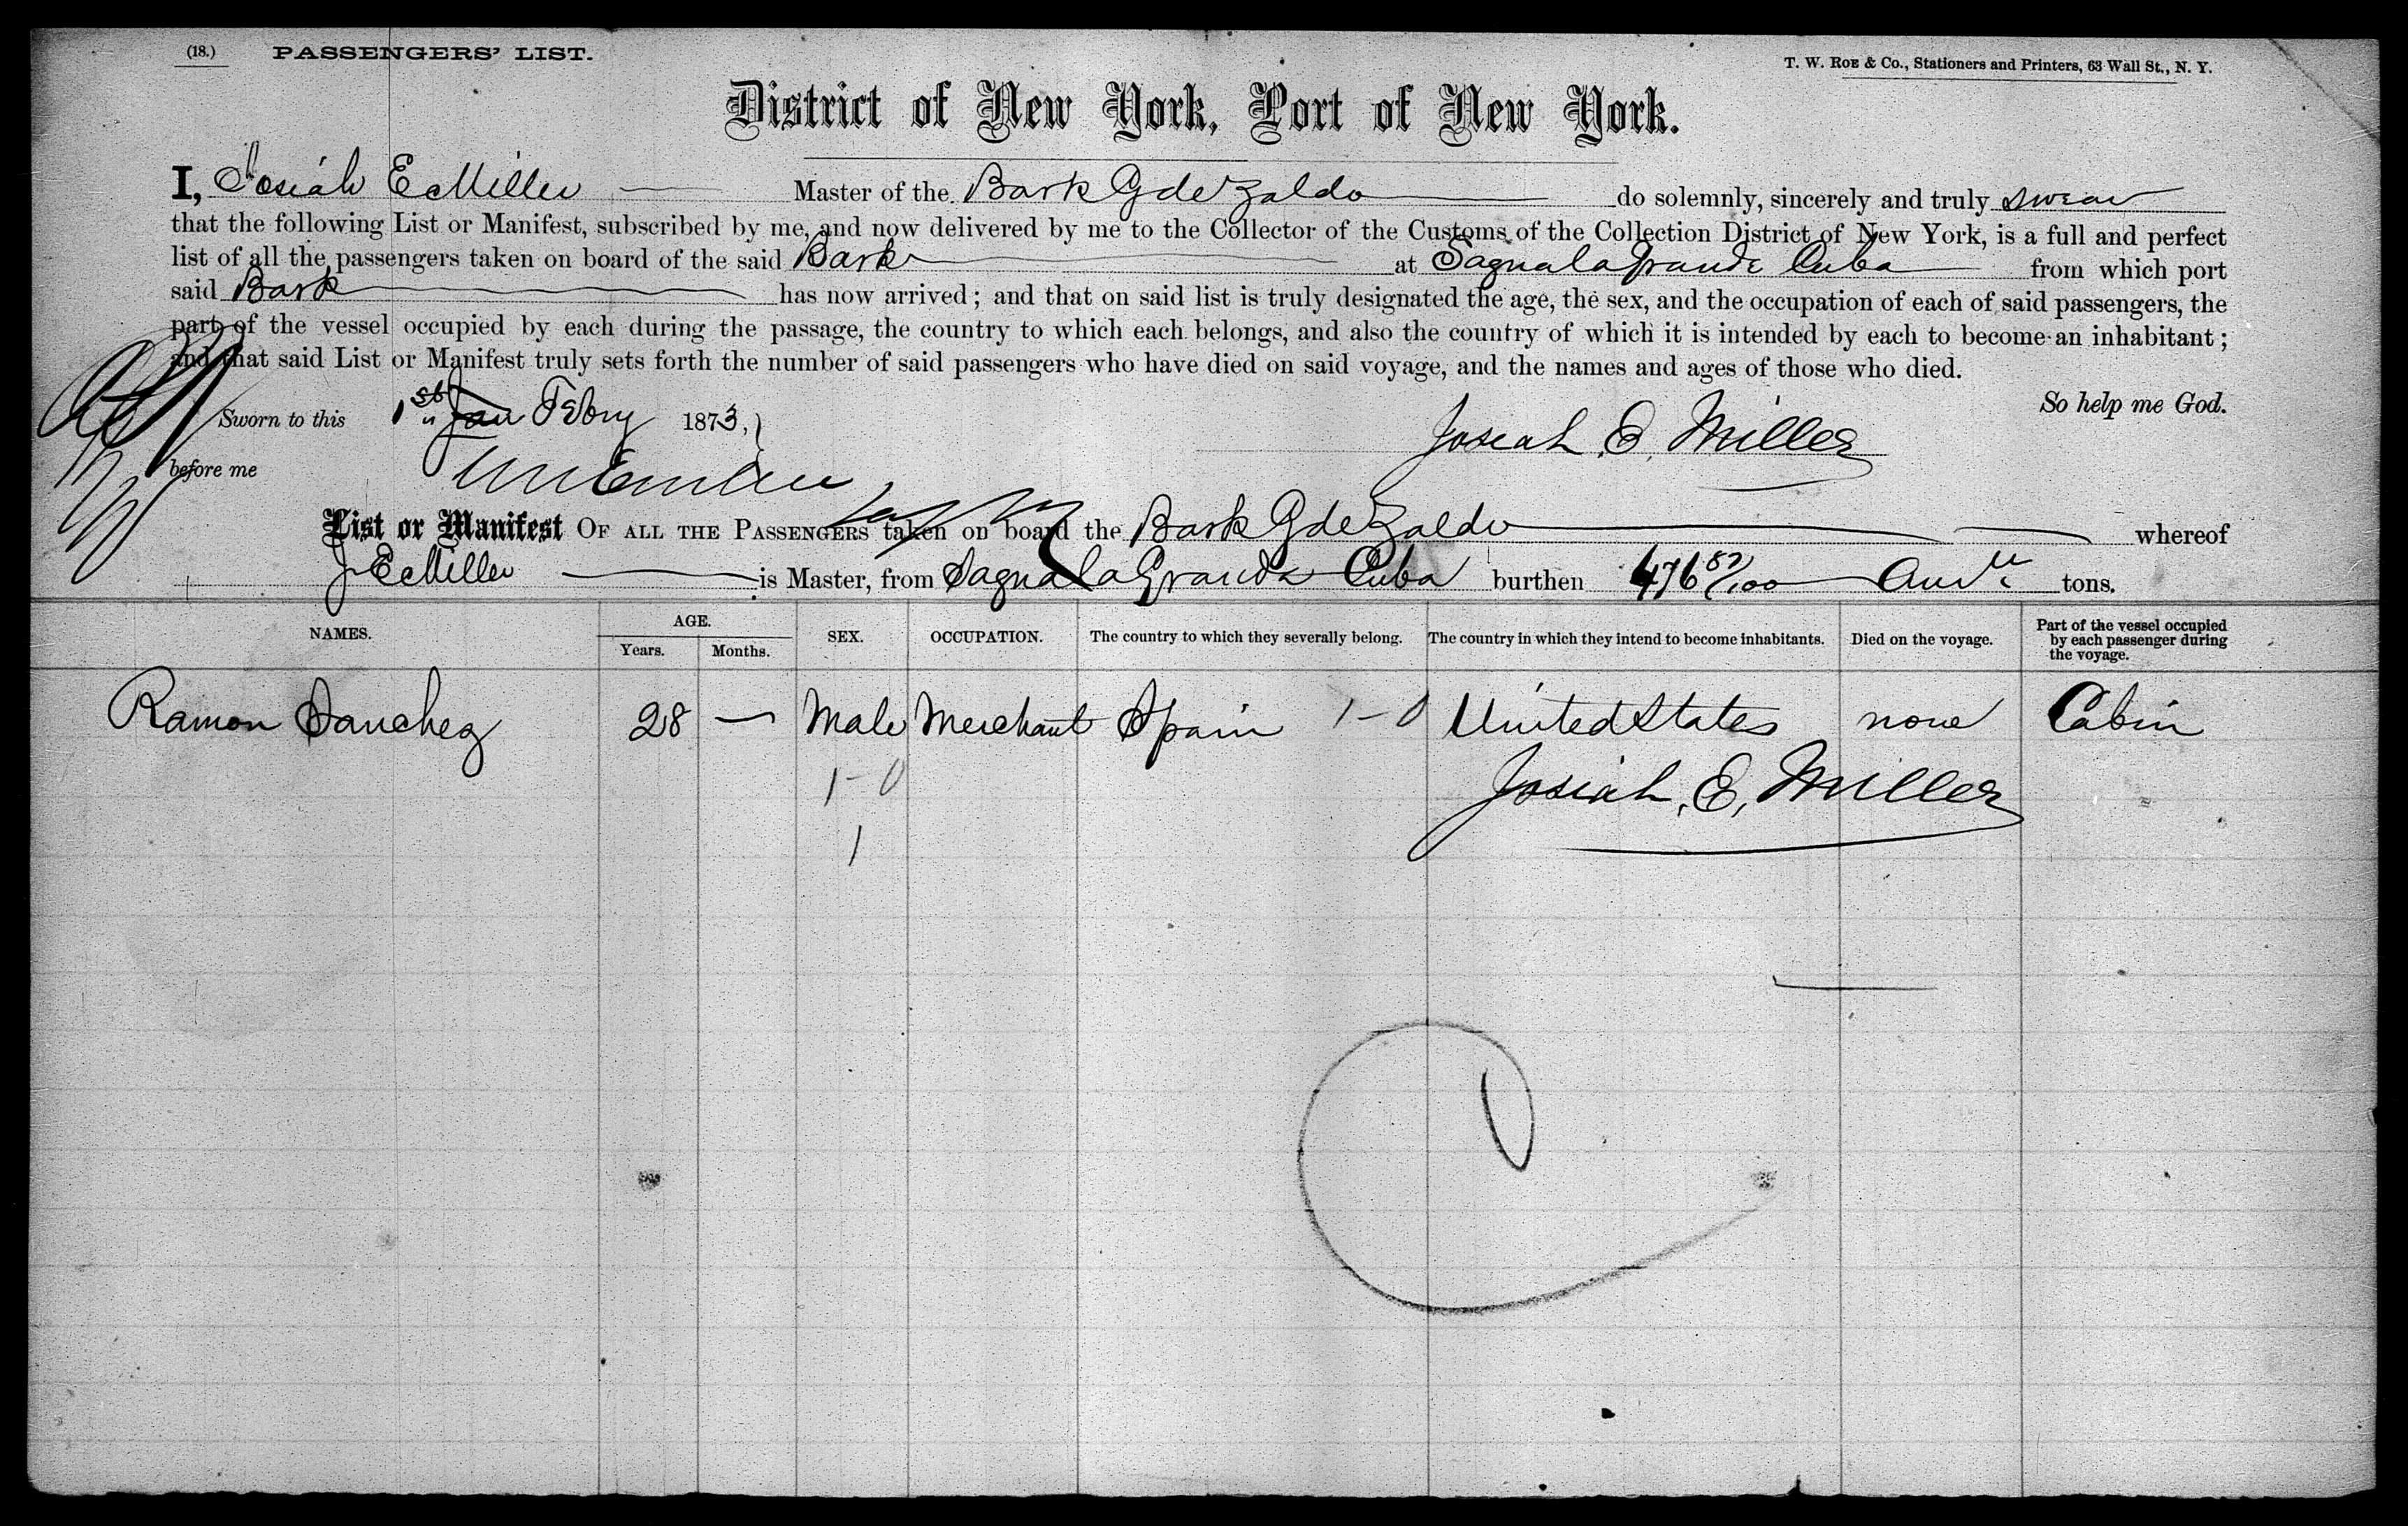 (18.) PASSENGERS' LIST.
T. W. ROE & Co., Stationers and Printers, 63 Wall St., N. Y.
District of New York, Port of New York.
I, Josiah E Miller Master of the Bark G de Zaldo do solemnly, sincerely and truly swear
that the following List or Manifest, subscribed by me, and now delivered by me to the Collector of the Customs of the Collection District of New York, is a full and perfect
list of all the passengers taken on board of the said Bark at Sagua la Grande Cuba from which port
said Bark has now arrived; and that on said list is truly designated the age, the sex, and the occupation of each of said passengers, the
part of the vessel occupied by each during the passage, the country to which each belongs, and also the country of which it is intended by each to become an inhabitant;
and that said List or Manifest truly sets forth the number of said passengers who have died on said voyage, and the names and ages of those who died.
So help me God.
Sworn to this 1st Jan Febry 1873,
Josiah. E. Miller
before me
List or Manifest OF ALL THE PASSENGERS taken on board the Bark G de Zaldo whereof
J E Miller is Master, from Sagua La Grande Cuba burthen 476 87/100 tons.
NAMES. AGE. Years. Months. SEX. OCCUPATION. The country to which they severally belong. The country in which they intend to become inhabitants. Died on the voyage. Part of the vessel occupied by each passenger during the voyage.
Ramon Sanchez 28 — Male Merchant Spain 1-0 United States none Cabin
1-0 Josiah. E. Miller
1